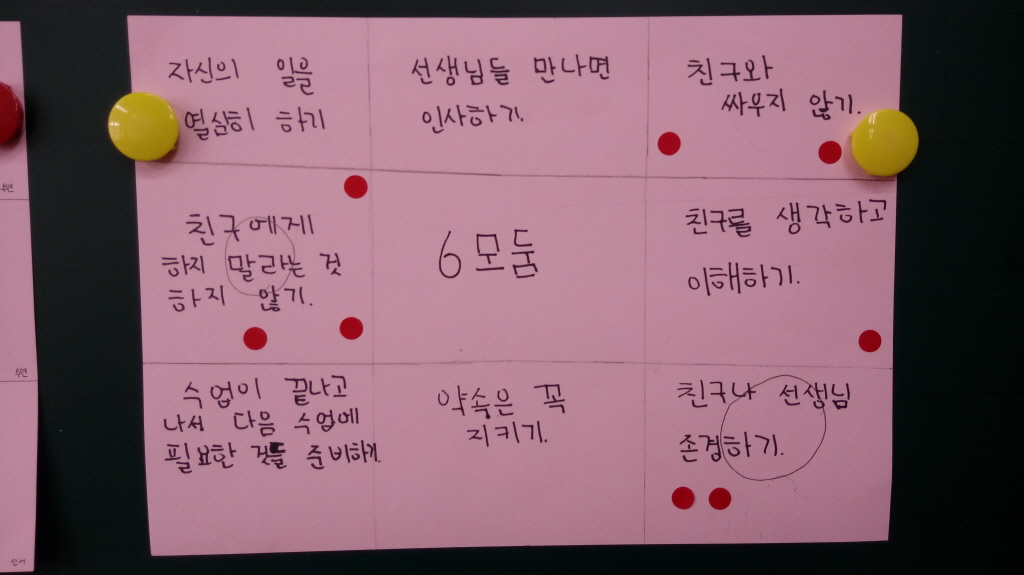 자신의 일을
열심히 하기
선생님들 만나면
인사하기.
친구와
싸우지 않기.
친구에게
하지 말라는 것
하지 않기.
6모둠
친구를 생각하고
이해하기.
수업이 끝나고
나서 다음 수업에
필요한 것들 준비하기.
약속은 꼭
지키기.
친구나 선생님
존경하기.
수연
수연